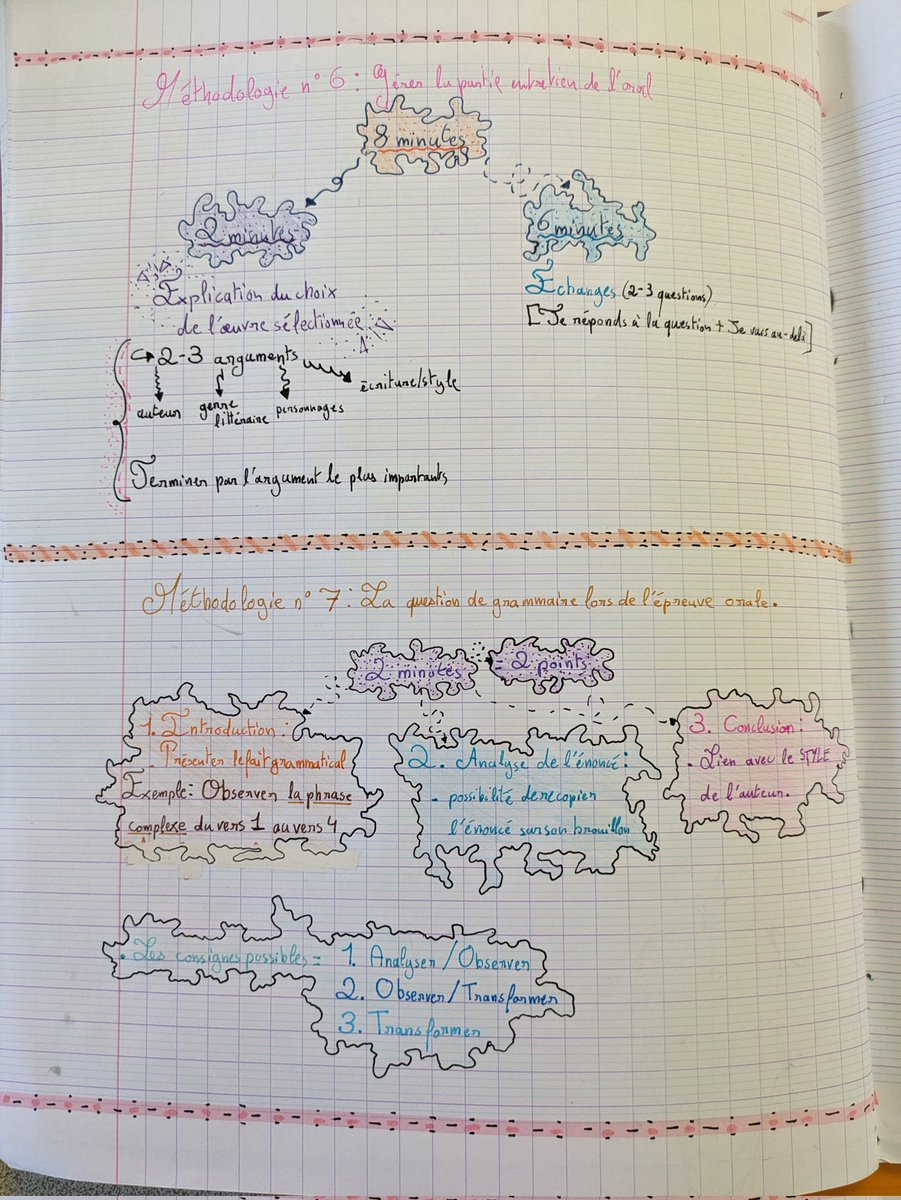 Méthodologie n° 6 : Gérer la partie entretien de l'oral
8 minutes
2 minutes
6 minutes
Explication du choix
de l'œuvre sélectionnée
Echanges (2-3 questions)
[Je réponds à la question + Je vais au-delà]
2-3 arguments
écriture/style
auteur
genre
littéraire
personnages
Terminer par l'argument le plus importants
Méthodologie n° 7 : La question de grammaire lors de l'épreuve orale.
2 minutes = 2 points
1. Introduction :
- Présenter le fait grammatical
Exemple : Observer la phrase
complexe du vers 1 au vers 4
2. Analyse de l'énoncé :
- possibilité de recopier
l'énoncé sur son brouillon
3. Conclusion :
- Lien avec le STYLE
de l'auteur.
. Les consignes possibles = 1. Analyser / Observer
2. Observer / Transformer
3. Transformer